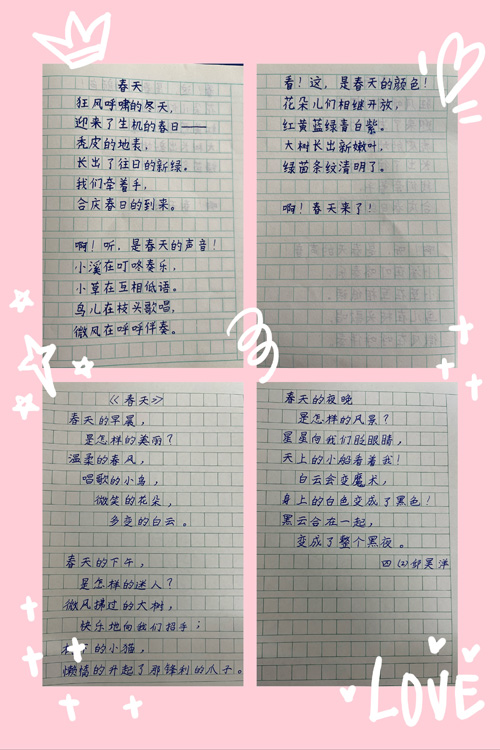 春天
狂风呼啸的冬天，
迎来了生机的春日——
秃皮的地表，
长出了往日的新绿。
我们牵着手，
合庆春日的到来。
啊！听，是春天的声音！
小溪在叮咚奏乐，
小草在互相低语。
鸟儿在枝头歌唱，
微风在呼呼伴奏。
看！这，是春天的颜色！
花朵儿们相继开放，
红黄蓝绿青白紫。
大树长出新嫩叶，
绿苗条纹清明了。
啊！春天来了！
《春天》
春天的早晨，
是怎样的美丽？
温柔的春风，
唱歌的小鸟，
微笑的花朵，
多变的白云。
春天的下午，
是怎样的迷人？
微风拂过的大树，
快乐地向我们招手；
的小猫，
懒惰的开起了那锋利的爪子。
春天的夜晚
是怎样的风景？
星星向我们眨眼睛，
天上的小船看着我！
白云会变魔术，
身上的白色变成了黑色！
黑云合在一起，
变成了整个黑夜。
四（2）邹昊洋
LOVE